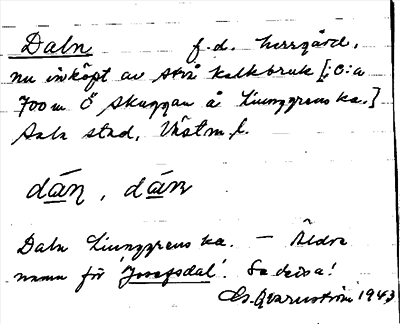 Daln f.d. herrgård,
nu inköpt av Strå kalkbruk [: c:a
700 m Ö Skuggan å Ljunggrens ka.]
Sala stad, Västm. l.
dán, dán
Daln Ljunggrens ka. — Äldre
namn för 'Josefsdal'. Se dessa!
G. Qvarnström 1943